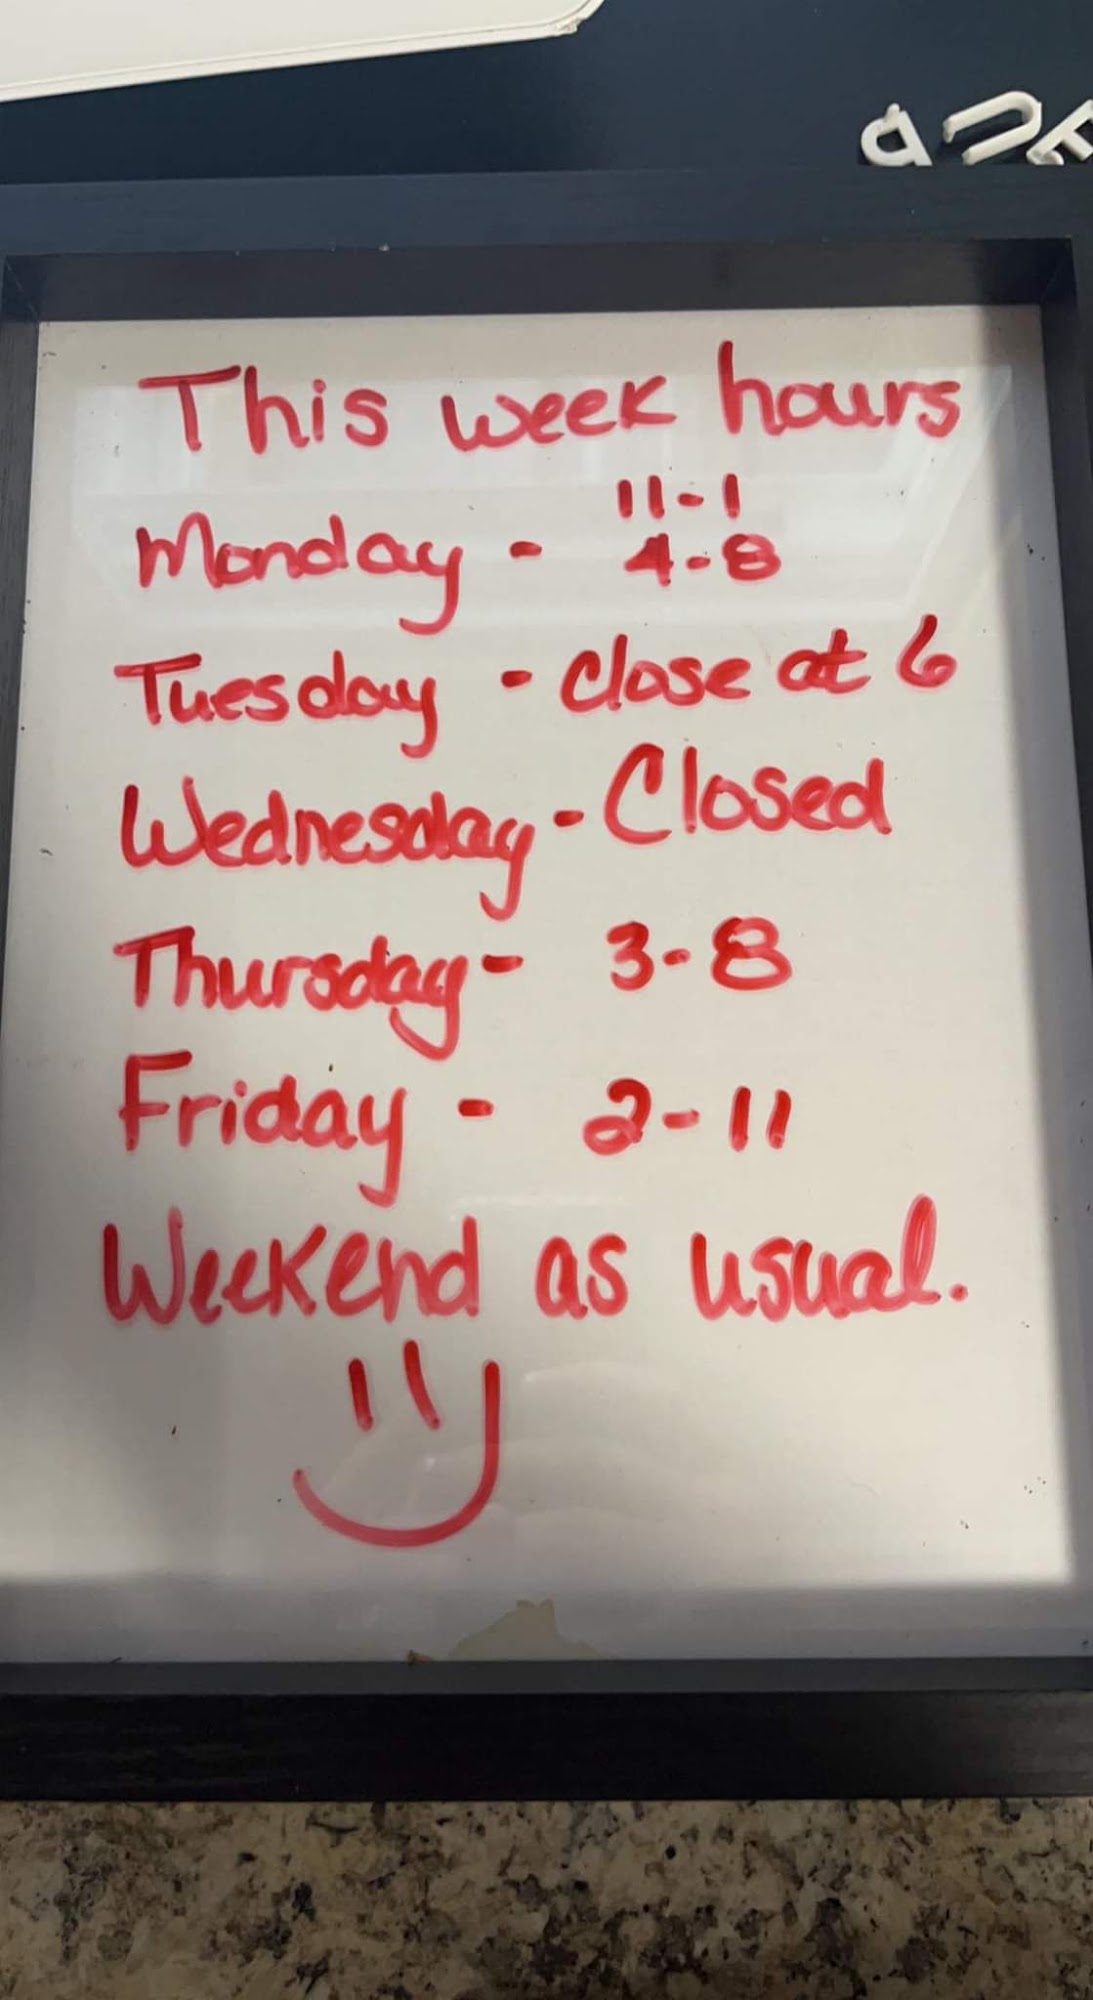 This week hours
11-1
Monday - 4-8
Tuesday - Close at 6
Wednesday - Closed
Thursday - 3-8
Friday - 2-11
Weekend as usual.